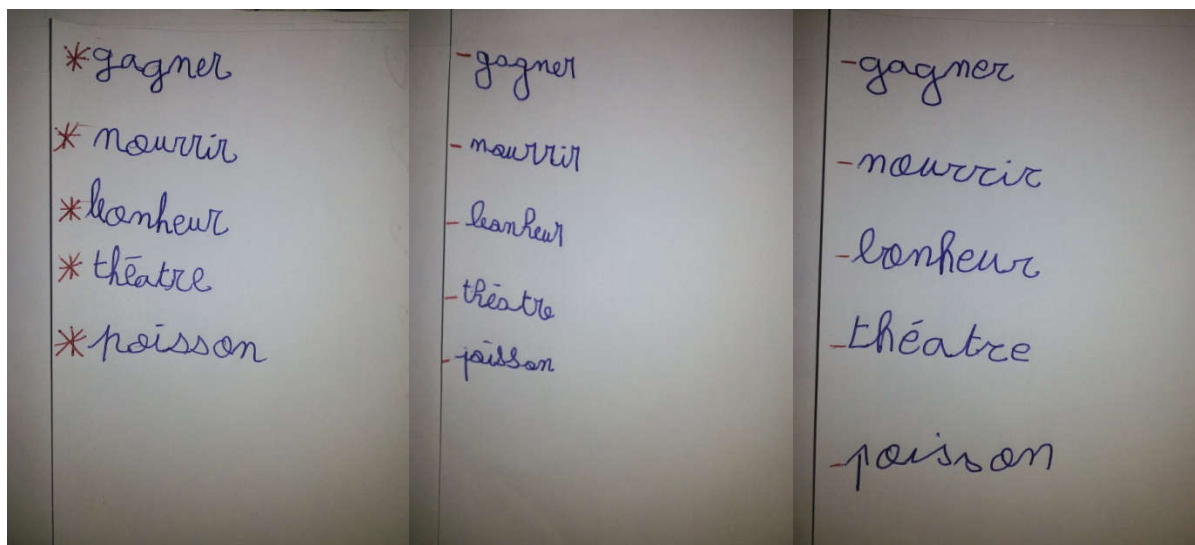 *gagner
* nourrir
*bonheur
* théatre
*poisson
-gagner
- nourrir
- bonheur
- théatre
- poisson
-gagner
-nourrir
-bonheur
-théatre
-poisson